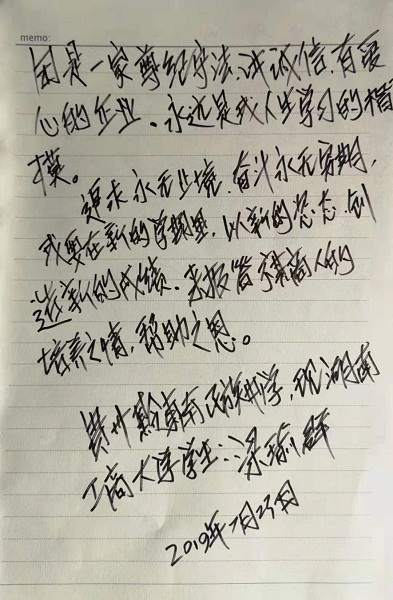 memo:
团是一家尊纪守法、诚诚信、有爱
心的企业、永远是我人生学习的楷
模。
追求永无止境，奋斗永无穷期，
我要在新的学期里，以新的姿态、创
造新的成绩、来报答襦商人的
培养之情，帮助之恩。
贵州黔东南民族中学，现湖南
工商大学学生：梁瑜群
2019年7月25日